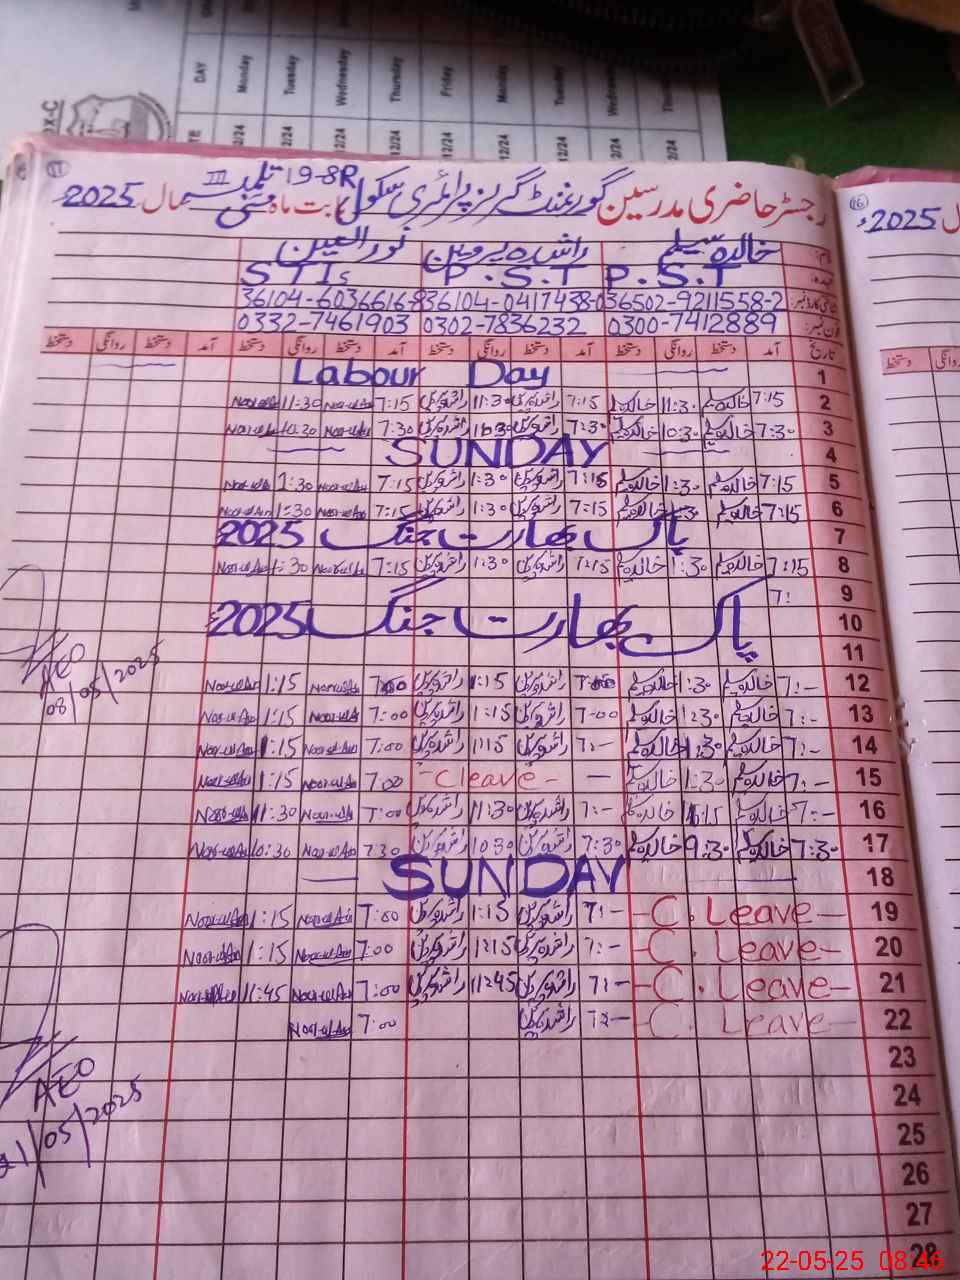 DAY Monday Tuesday Wednesday Thursday Friday Monday Tuesday Wednesday Thursday
12/24 12/24 12/24 12/24 12/24 12/24 12/24 12/24
رجسٹر حاضری مدرسین گورنمنٹ گرلز پرائمری سکول نمبر III 19-8R بابت ماہ مئی سال 2025ء
17
16
سال 2025ء
نام: خالدہ سلیم راشدہ پروین نورالعین
عہدہ: P.S.T P.S.T STIs
شناختی کارڈ نمبر: 36502-9211558-2 36104-0417438-0 36104-6036616-8
فون نمبر: 0300-7412889 0302-7836232 0332-7461903
تاریخ آمد دستخط روانگی دستخط آمد دستخط روانگی دستخط آمد دستخط روانگی دستخط آمد دستخط روانگی دستخط
روانگی دستخط
1 Labour Day
2 7:15 خالدہ سلیم 11:30 خالدہ سلیم 7:15 راشدہ پروین 11:30 راشدہ پروین 7:15 Noor-ul-Ain 11:30 Noor-ul-Ain
3 7:30 خالدہ سلیم 10:30 خالدہ سلیم 7:30 راشدہ پروین 10:30 راشدہ پروین 7:30 Noor-ul-Ain 10:30 Noor-ul-Ain
4 SUNDAY
5 7:15 خالدہ سلیم 1:30 خالدہ سلیم 7:15 راشدہ پروین 1:30 راشدہ پروین 7:15 Noor-ul-Ain 1:30 Noor-ul-Ain
6 7:15 خالدہ سلیم 1:30 خالدہ سلیم 7:15 راشدہ پروین 1:30 راشدہ پروین 7:15 Noor-ul-Ain 1:30 Noor-ul-Ain
7 پاک بھارت جنگ 2025ء
8 7:15 خالدہ سلیم 1:30 خالدہ سلیم 7:15 راشدہ پروین 1:30 راشدہ پروین 7:15 Noor-ul-Ain 1:30 Noor-ul-Ain
9 7:
10 پاک بھارت جنگ 2025ء
11
AEO
08/05/2025
12 7:- خالدہ سلیم 1:30 خالدہ سلیم 7:00 راشدہ پروین 1:15 راشدہ پروین 7:00 Noor-ul-Ain 1:15 Noor-ul-Ain
13 7:- خالدہ سلیم 1:30 خالدہ سلیم 7-00 راشدہ پروین 1:15 راشدہ پروین 7:00 Noor-ul-Ain 1:15 Noor-ul-Ain
14 7:- خالدہ سلیم 1:30 خالدہ سلیم 7:- راشدہ پروین 1:15 راشدہ پروین 7:00 Noor-ul-Ain 1:15 Noor-ul-Ain
15 7:- خالدہ سلیم 1:30 خالدہ سلیم - Cleave - 7:00 Noor-ul-Ain 1:15 Noor-ul-Ain
16 7:- خالدہ سلیم خالدہ سلیم 7:- راشدہ پروین 11:30 راشدہ پروین 7:00 Noor-ul-Ain 11:30 Noor-ul-Ain
17 7:30 خالدہ سلیم 9:30 خالدہ سلیم 7:30 راشدہ پروین 10:30 راشدہ پروین 7:30 Noor-ul-Ain 10:30 Noor-ul-Ain
18 SUNDAY
19 - C. Leave - 7:- راشدہ پروین 1:15 راشدہ پروین 7:00 Noor-ul-Ain 1:15 Noor-ul-Ain
20 - C. Leave - 7:- راشدہ پروین 1:15 راشدہ پروین 7:00 Noor-ul-Ain 1:15 Noor-ul-Ain
21 - C. Leave - 7:- راشدہ پروین 11:45 راشدہ پروین 7:00 Noor-ul-Ain 11:45 Noor-ul-Ain
22 - C. Leave - 7:- راشدہ پروین 7:00 Noor-ul-Ain
AEO
21/05/2025
23
24
25
26
27
28
22-05-25 08:46